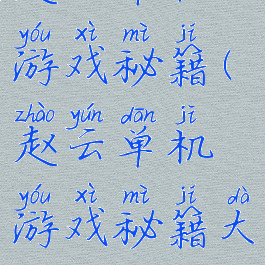 yóu xì mì jí
游戏秘籍(
zhào yún dān jī
赵云单机
yóu xì mì jí dà
游戏秘籍大